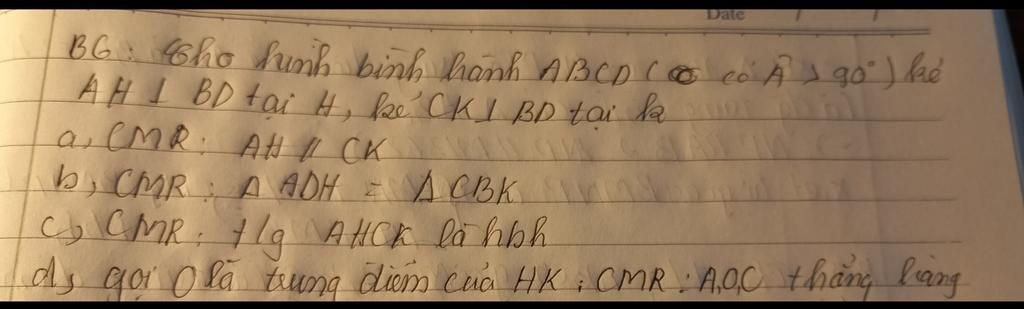 Date
B6: Cho hình bình hành ABCD ( có Â > 90°) kẻ
AH ⊥ BD tại H, kẻ CK ⊥ BD tại k
a, CMR: AH // CK
b, CMR: Δ ADH = Δ CBK
c, CMR: t/g AHCK là hbh
d, gọi O là trung điểm của HK; CMR: A,O,C thẳng hàng